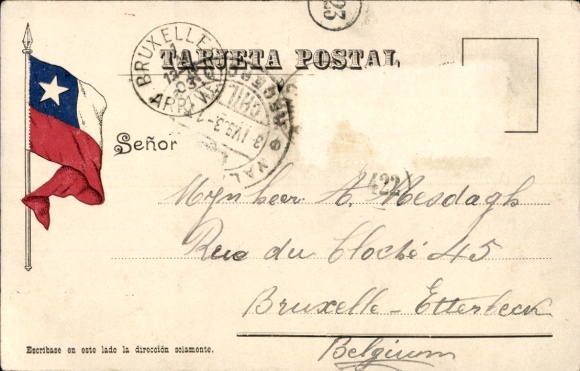 23
TARJETA POSTAL
BRUXELLES
1903
ARRIVÉE
CHILE
VAL
Señor
422
Mynheer A. Mesdagh
Rue du Cloché 45
Bruxelle - Etterbeek
Belgium
Escríbase en este lado la dirección solamente.